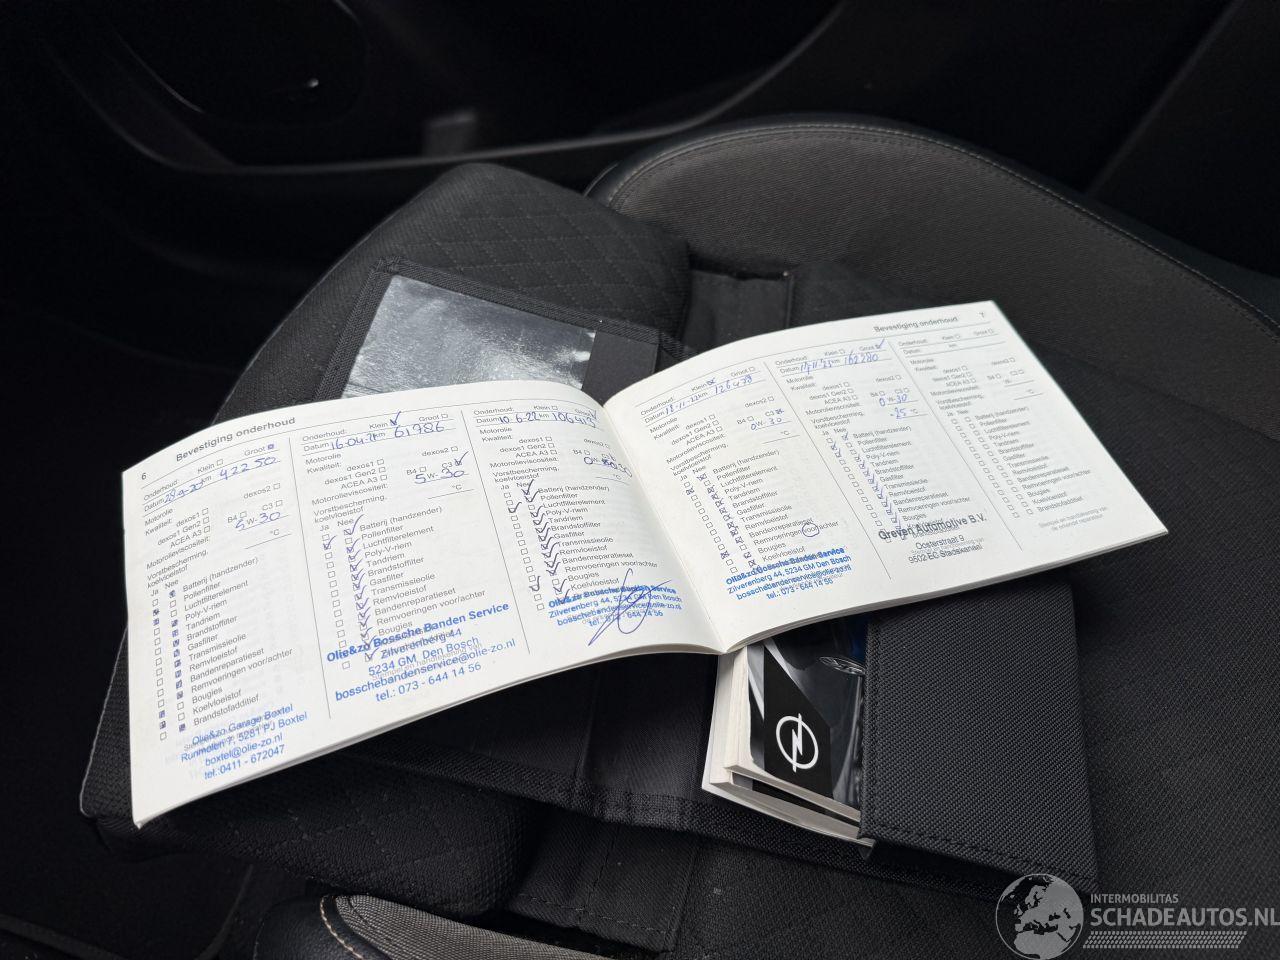 6
Bevestiging onderhoud
Onderhoud: Klein Groot
Datum km 42250
Motorolie
Kwaliteit: dexos1 dexos2
dexos1 Gen2
ACEA A3 B4 C3
Motorolieviscositeit: 5 W- 30
Vorstbescherming,
koelvloeistof °C
Ja Nee
Batterij (handzender)
Pollenfilter
Luchtfilterelement
Poly-V-riem
Tandriem
Brandstoffilter
Gasfilter
Transmissieolie
Remvloeistof
Bandenreparatieset
Remvoeringen voor/achter
Bougies
Koelvloeistof
Brandstofadditief
Olie&zo Garage Boxtel
Runmolen 7, 5281 PJ Boxtel
boxtel@olie-zo.nl
tel.:0411 - 672047
Onderhoud: Klein Groot
Datum 16-04-21 km 61786
Motorolie
Kwaliteit: dexos1 dexos2
dexos1 Gen2
ACEA A3 B4 C3
Motorolieviscositeit: 5 W- 30
Vorstbescherming,
koelvloeistof °C
Ja Nee
Batterij (handzender)
Pollenfilter
Luchtfilterelement
Poly-V-riem
Tandriem
Brandstoffilter
Gasfilter
Transmissieolie
Remvloeistof
Bandenreparatieset
Remvoeringen voor/achter
Bougies
Olie&zo Bossche Banden Service
Zilverenberg 44
5234 GM, Den Bosch
bosschebandenservice@olie-zo.nl
tel.: 073 - 644 14 56
Onderhoud: Klein Groot
Datum 10-6-22 km 106413
Motorolie
Kwaliteit: dexos1 dexos2
dexos1 Gen2
ACEA A3 B4
Motorolieviscositeit: 0 W- 30
Vorstbescherming,
koelvloeistof
Ja Nee
Batterij (handzender)
Pollenfilter
Luchtfilterelement
Poly-V-riem
Tandriem
Brandstoffilter
Gasfilter
Transmissieolie
Remvloeistof
Bandenreparatieset
Remvoeringen voor/achter
Bougies
Koelvloeistof
Olie&zo Bossche Banden Service
Zilverenberg 44, 5234 GM Den Bosch
bosschebandenservice@olie-zo.nl
tel.: 073 - 644 14 56
Bevestiging onderhoud
7
Onderhoud: Klein Groot
Datum 18-11-22 km 126479
Motorolie
Kwaliteit: dexos1 dexos2
dexos1 Gen2
ACEA A3 B4 C3
Motorolieviscositeit: 0 W- 30
Vorstbescherming,
koelvloeistof °C
Ja Nee
Batterij (handzender)
Pollenfilter
Luchtfilterelement
Poly-V-riem
Tandriem
Brandstoffilter
Gasfilter
Transmissieolie
Remvloeistof
Bandenreparatieset
Remvoeringen voor/achter
Bougies
Koelvloeistof
Olie&zo Bossche Banden Service
Zilverenberg 44, 5234 GM Den Bosch
bosschebandenservice@olie-zo.nl
tel.: 073 - 644 14 56
Onderhoud: Klein Groot
Datum km 162280
Motorolie
Kwaliteit: dexos1 dexos2
dexos1 Gen2
ACEA A3 B4 C3
Motorolieviscositeit: 0 W- 30
Vorstbescherming,
koelvloeistof -25 °C
Ja Nee
Batterij (handzender)
Pollenfilter
Luchtfilterelement
Poly-V-riem
Tandriem
Brandstoffilter
Gasfilter
Transmissieolie
Remvloeistof
Bandenreparatieset
Remvoeringen voor/achter
Bougies
Greven Automotive B.V.
Oosterstraat 9
9502 EC Stadskanaal
Onderhoud: Klein Groot
Datum km
Motorolie
Kwaliteit: dexos1 dexos2
dexos1 Gen2
ACEA A3 B4 C3
Motorolieviscositeit: W-
Vorstbescherming,
koelvloeistof °C
Ja Nee
Batterij (handzender)
Pollenfilter
Luchtfilterelement
Poly-V-riem
Tandriem
Brandstoffilter
Gasfilter
Transmissieolie
Remvloeistof
Bandenreparatieset
Remvoeringen voor/achter
Bougies
Koelvloeistof
Brandstofadditief
INTERMOBILITAS
SCHADEAUTOS.NL